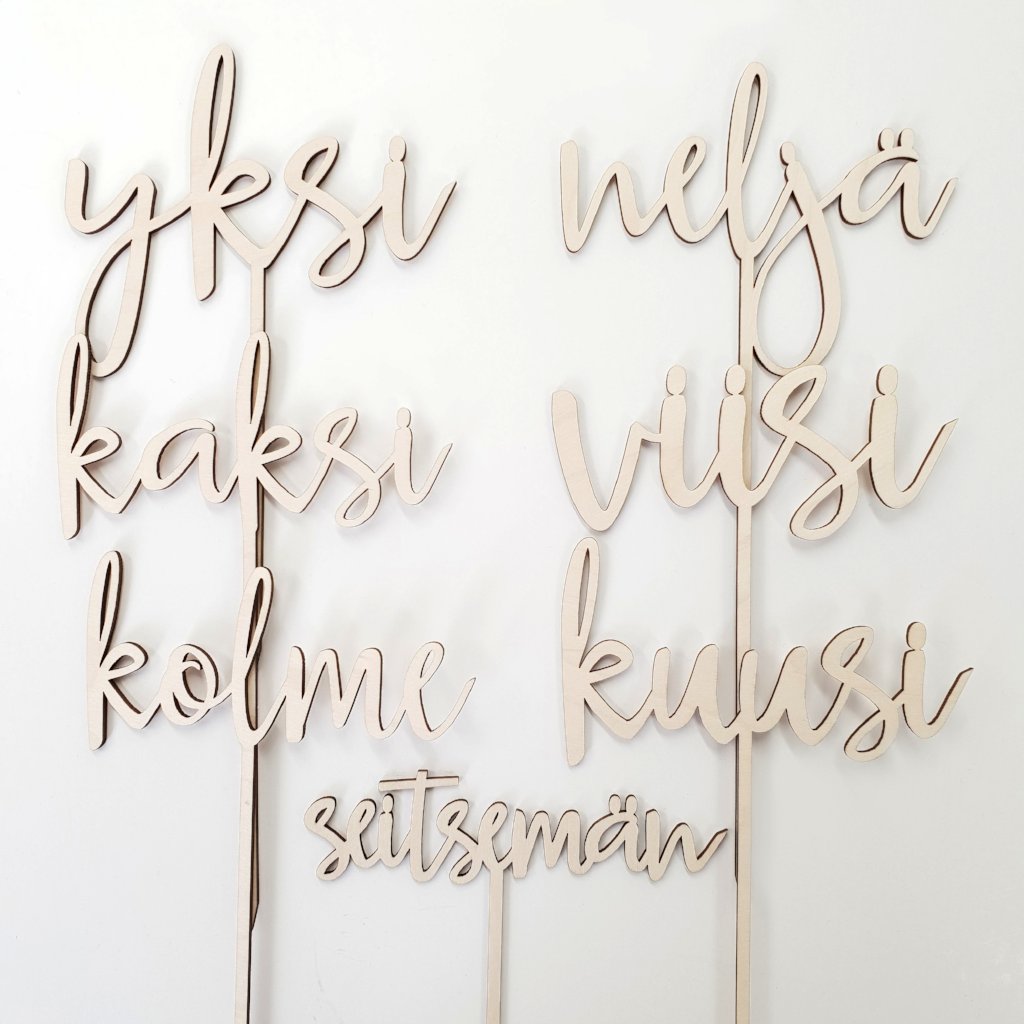 yksi
kaksi
kolme
neljä
viisi
kuusi
seitsemän